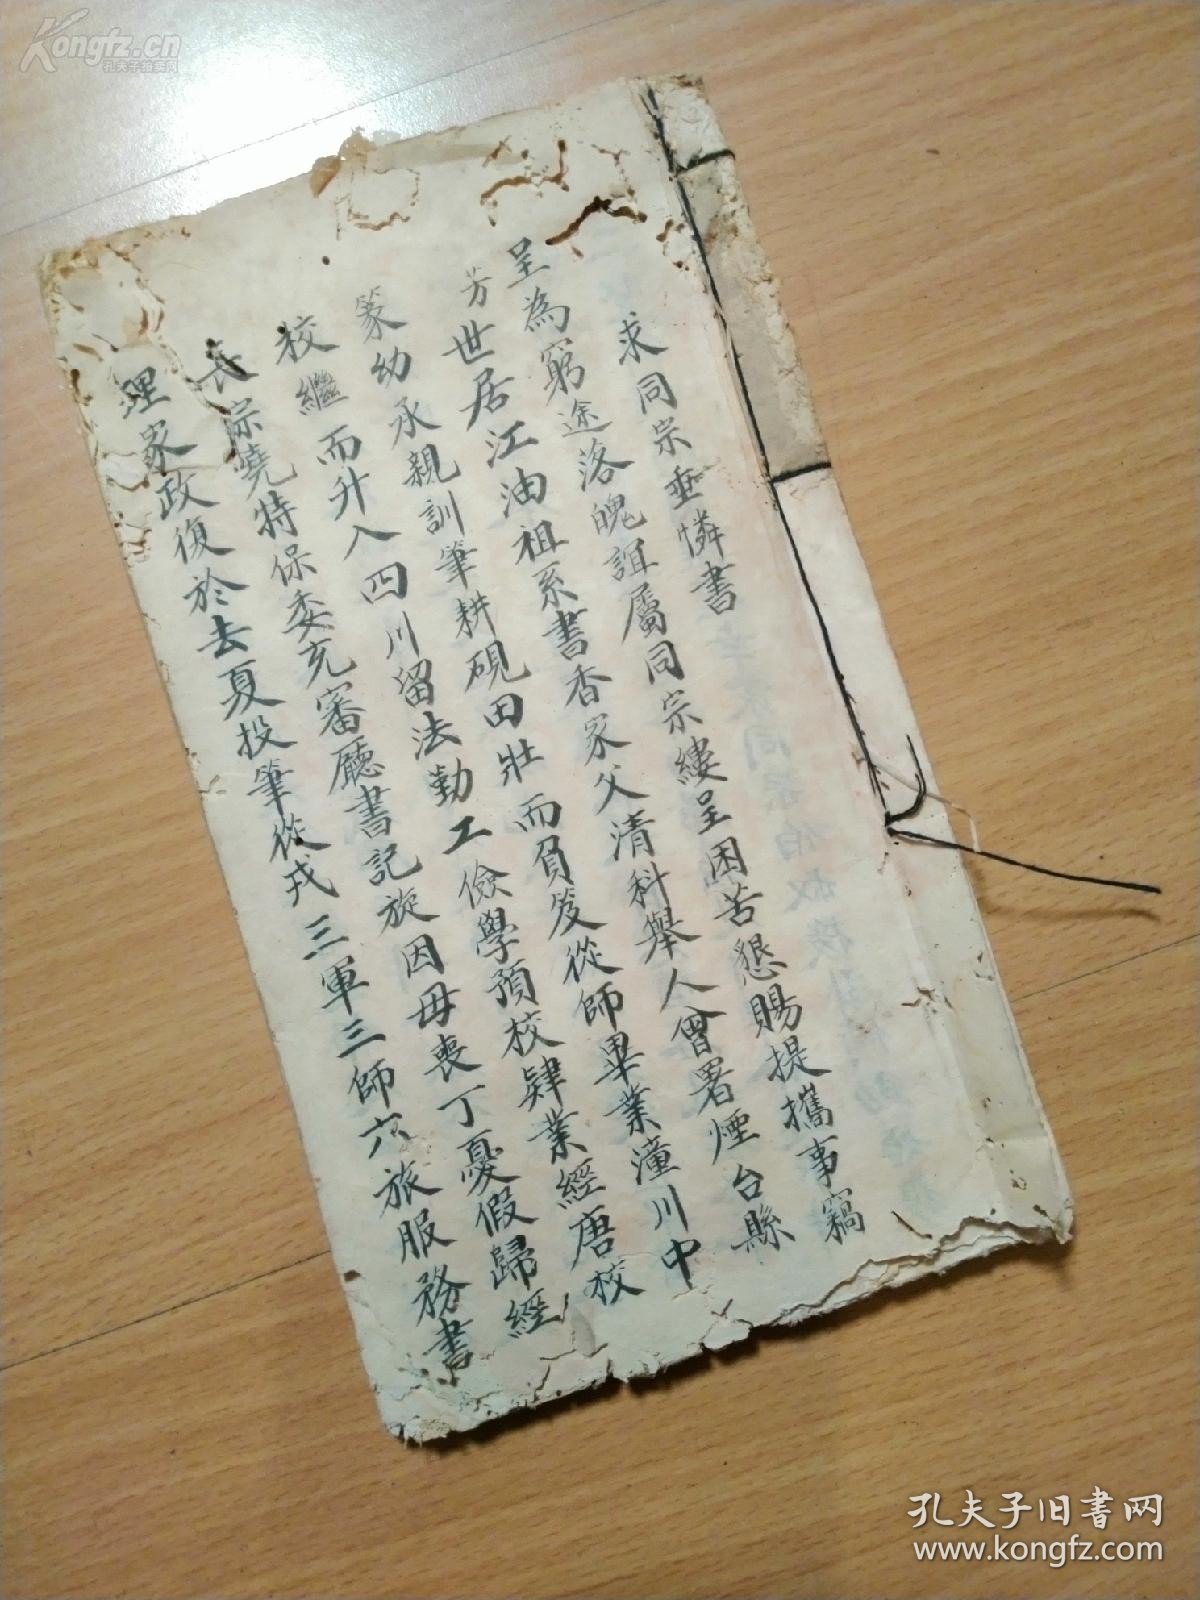 求同宗垂憐書
呈為窮途落魄誼屬同宗縷呈困苦懇賜提攜事竊
芳世居江油祖系書香家父清科舉人曾署煙台縣
篆幼承親訓筆耕硯田壯而負笈從師畢業潼川中
校繼而升入四川留法勤工儉學預校肄業經唐校
長宗堯特保委充審廳書記旋因母喪丁憂假歸經
理家政復於去夏投筆從戎三軍三師六旅服務書
Kongfz.cn
孔夫子拍卖网
孔夫子旧书网
www.kongfz.com